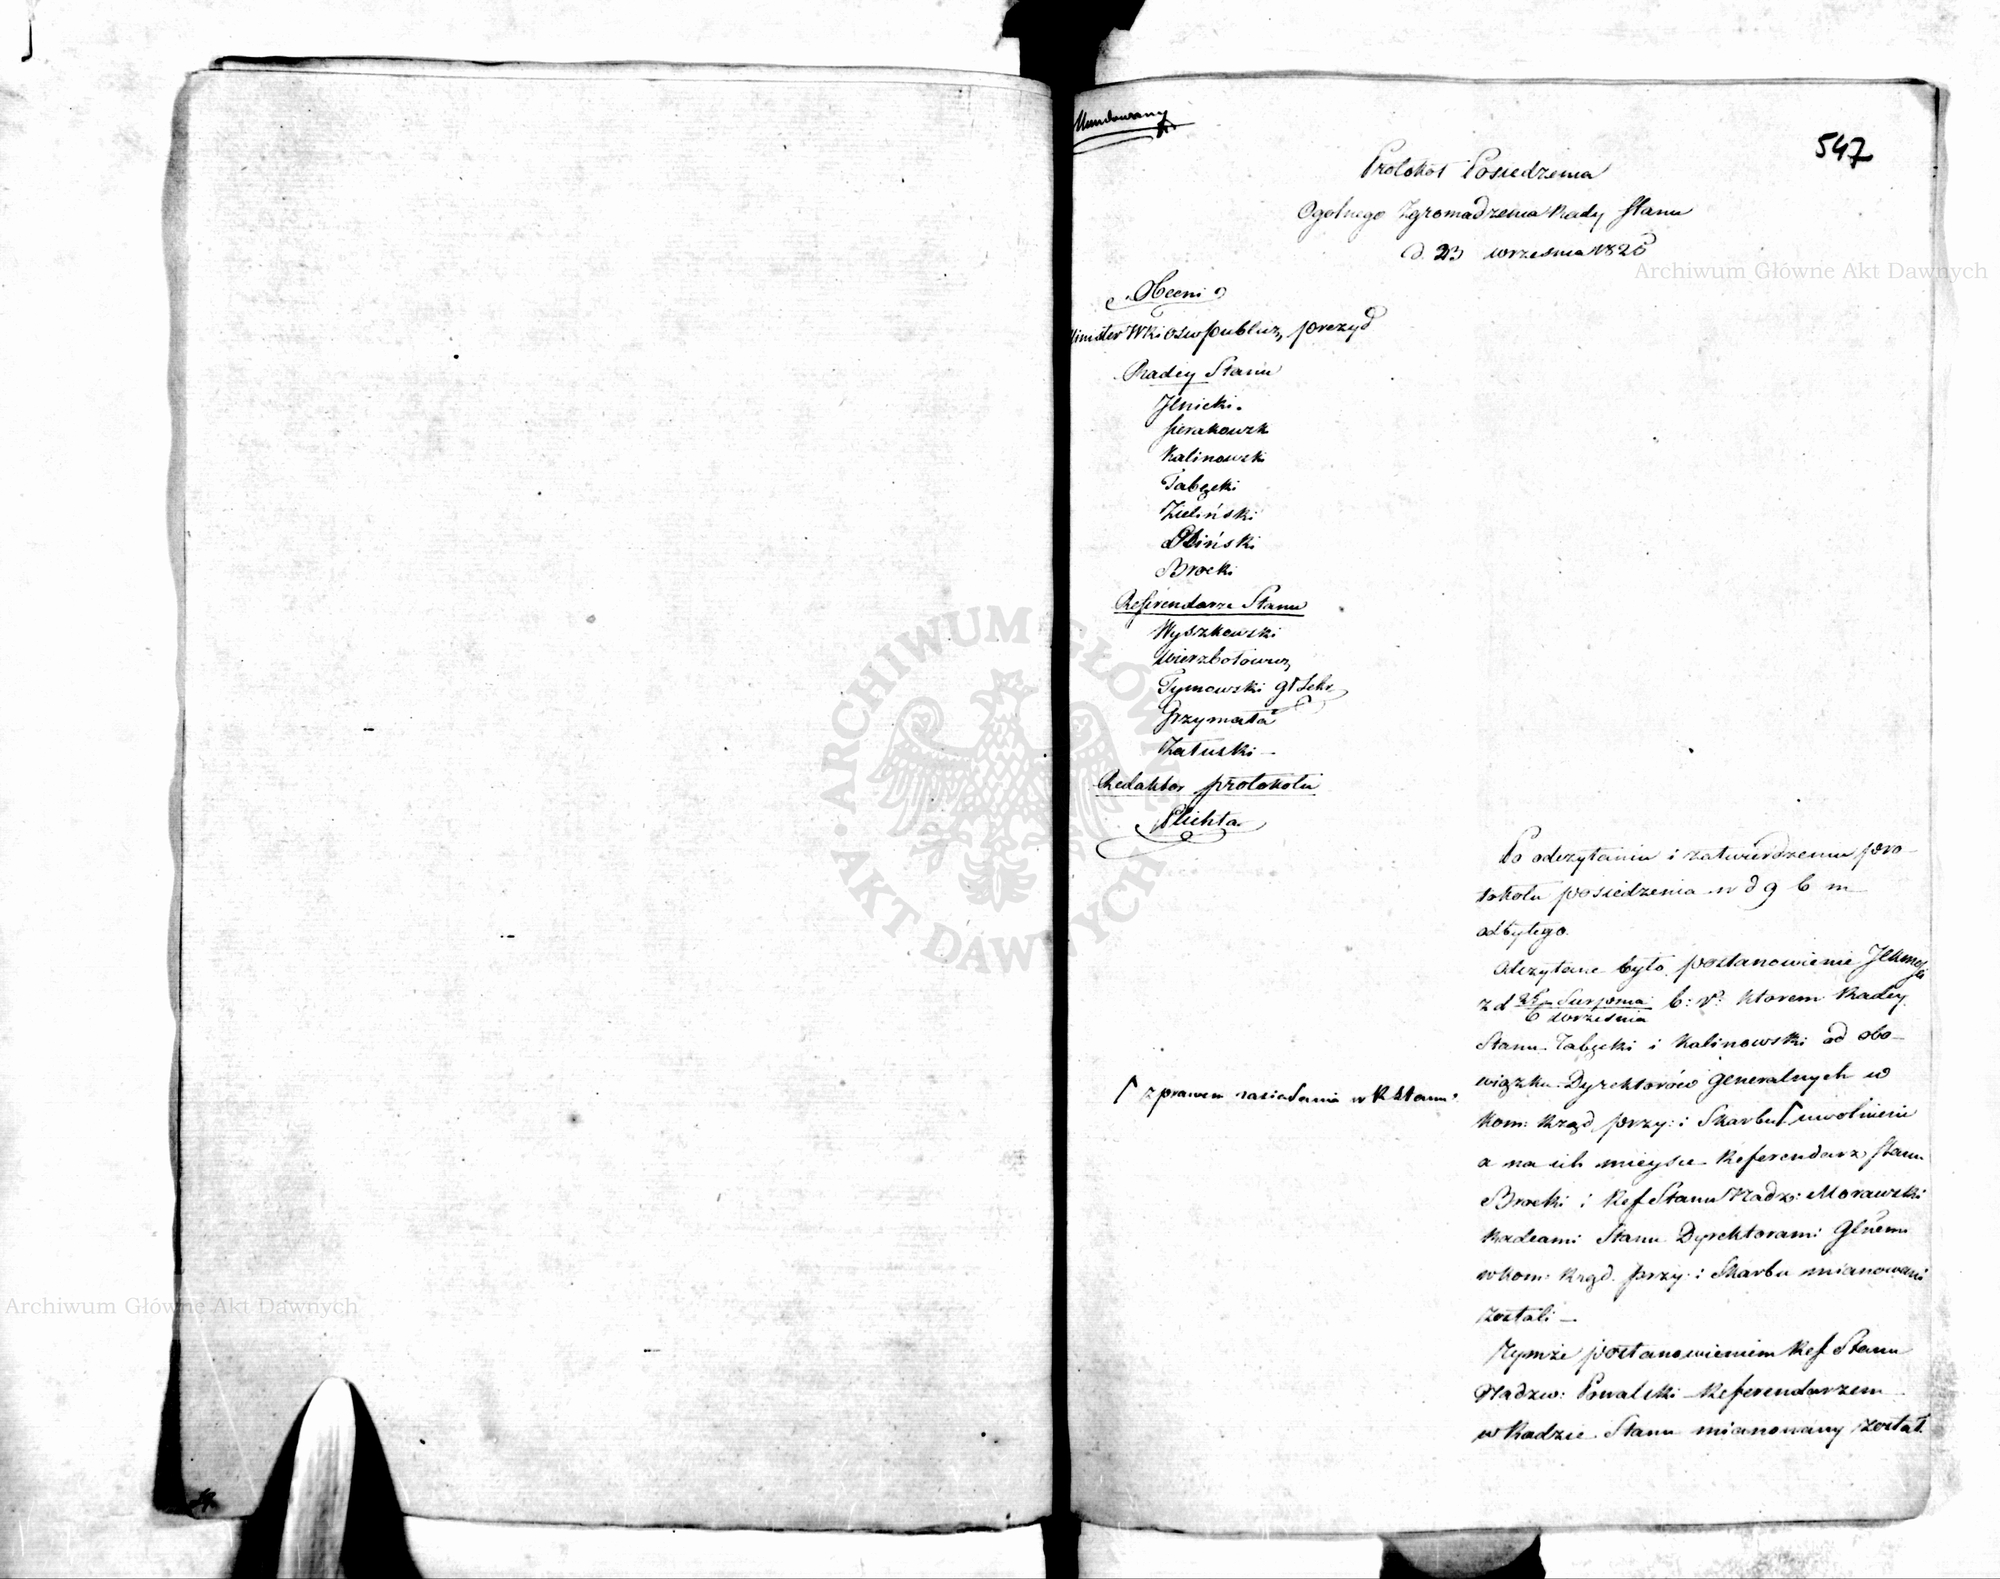 Mundowany
547
Protokoł Posiedzenia
Ogolnego Zgromadzenia Rady Stanu
d. 23 września 182
Obecni
Minister WR i Oswpublicz, prezyd
Radcy Stanu
Jlnicki.
Sierakowsk
Kalinowski
Tabęcki
Zieliński
Obiński
Brocki
Referendarze Stanu
Wyszkowski
Wierzbołowicz
Tymowski gł Sekr
Grzymała
Załuski
Redaktor protokołu
Plichta
Po odczytaniu i zatwierdzeniu pro-
tokołu posiedzenia w d 9 b m
odbytego.
Odczytane było postanowienie
z d 25 Sierpnia / 6 września b: r: ktorem Radcy
Stanu Tabęcki i Kalinowski od obo-
wiązku Dyrektorów generalnych w
Kom: Rząd przy: i Skarbu ſ uwolnieni
ſ z prawem zasiadania w R Stanu.
a na ich mieysce Referendarz Stanu
Brocki i Ref Stanu Nadzw: Morawski
Radcami Stanu Dyrektorami Głnemi
w Kom: Rząd. przy: i Skarbu mianowani
zostali —
Tymże postanowieniem Ref Stanu
Nadzw: Powalski Referendarzem
w Radzie Stanu mianowany został.
Archiwum Główne Akt Dawnych
Archiwum Główne Akt Dawnych
ARCHIWUM GŁÓWNE AKT DAWNYCH